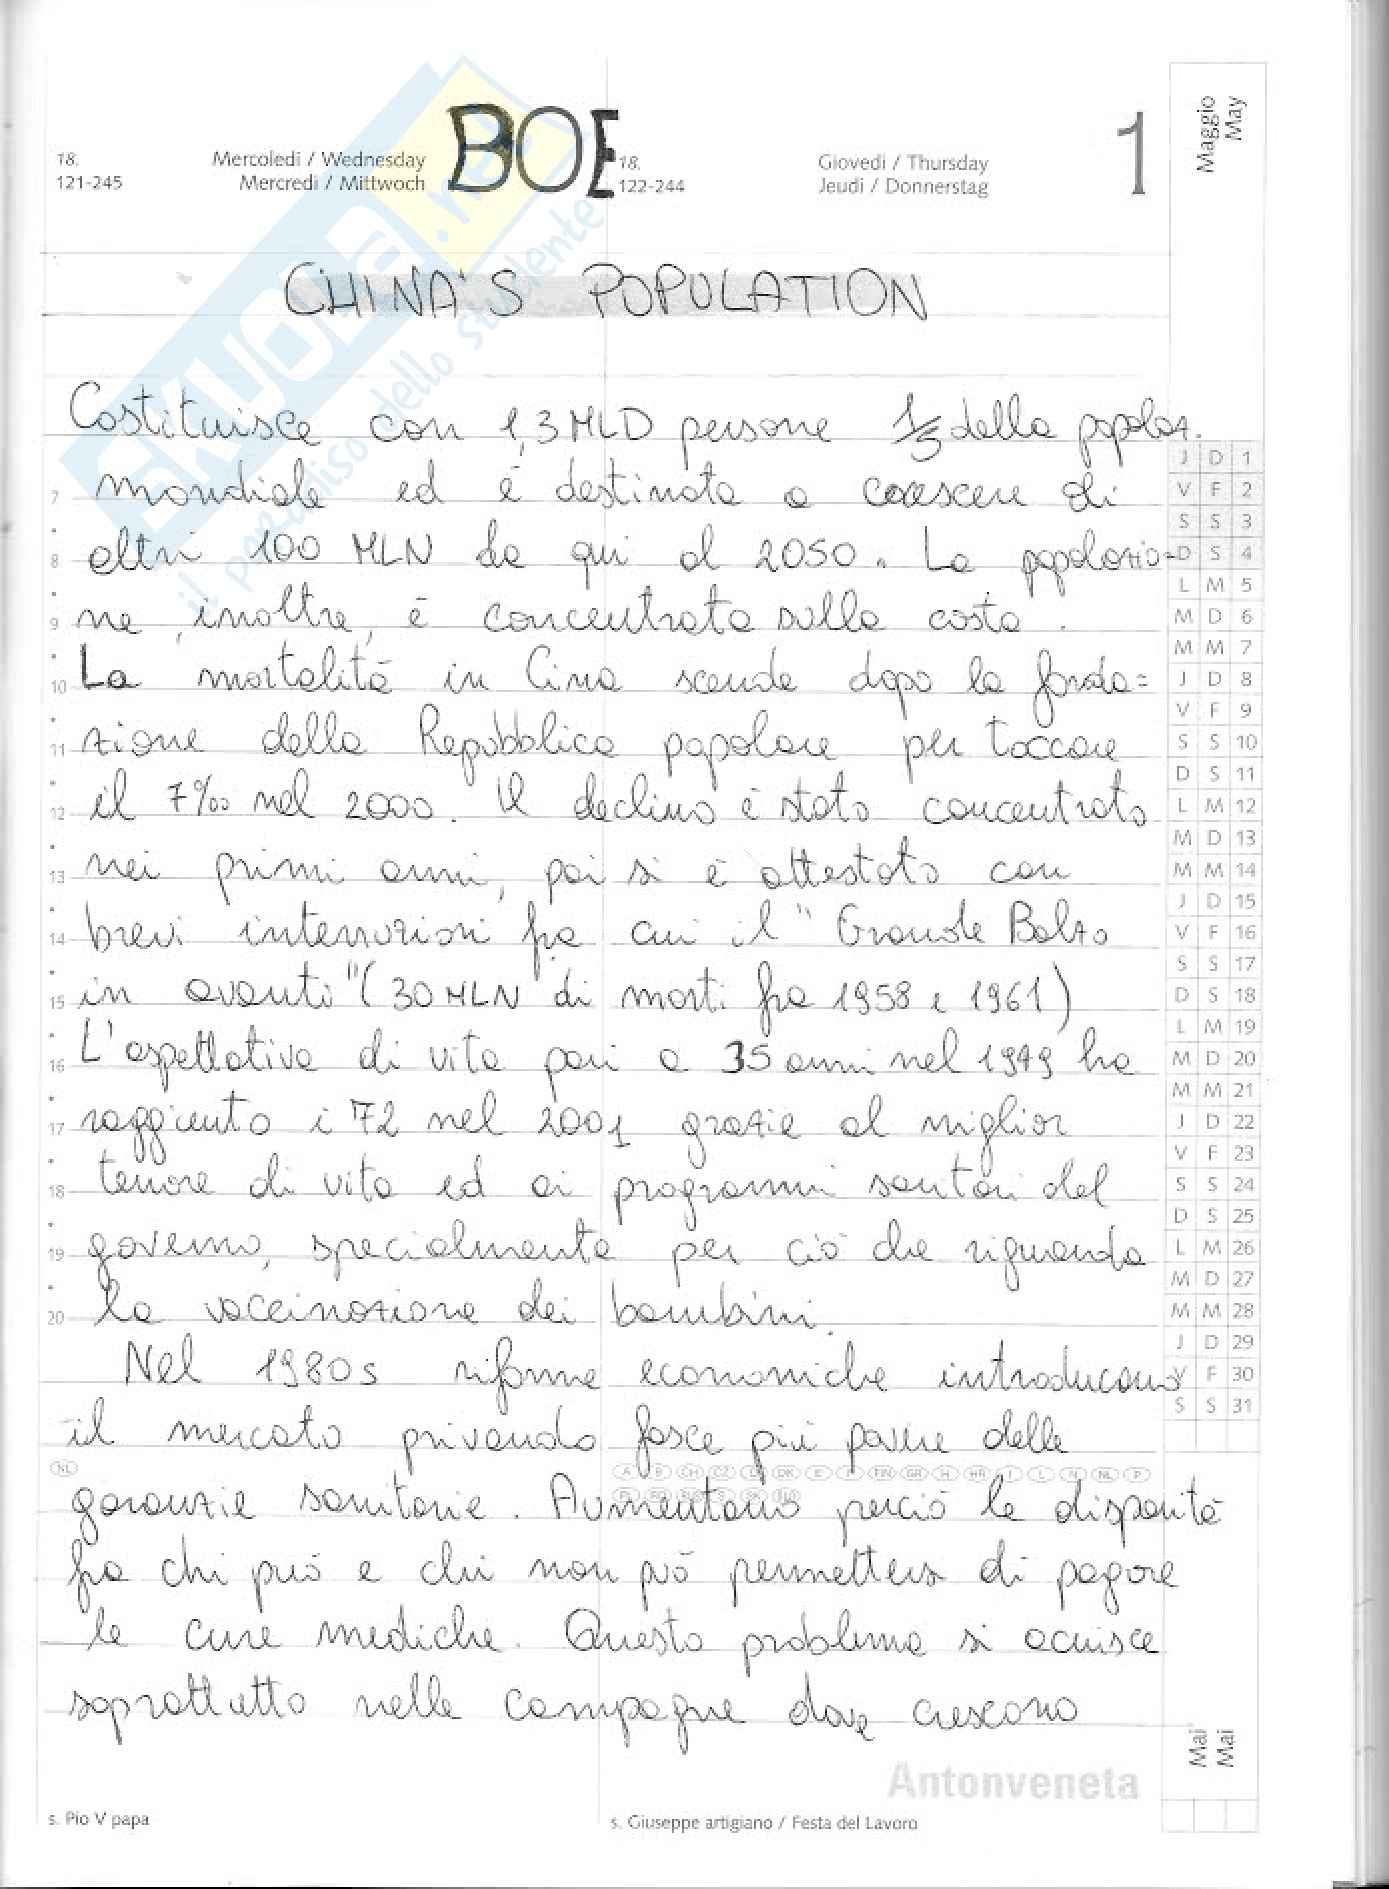 18.
121-245
Mercoledì / Wednesday
Mercredi / Mittwoch
BOE
18.
122-244
Giovedì / Thursday
Jeudi / Donnerstag
1
Maggio
May
SKUOLA.net
il paradiso dello studente
CHINA'S POPULATION
Costituisce con 1,3 MLD persone 1/5 della popolaz.
mondiale ed è destinata a crescere di
altri 100 MLN da qui al 2050. La popolazio=
ne, inoltre, è concentrata sulla costa.
La mortalità in Cina scende dopo la fonda=
zione della Repubblica popolare per toccare
il 7‰ nel 2000. Il declino è stato concentrato
nei primi anni, poi si è attestato con
brevi interruzioni fra cui il "Grande Balzo
in avanti" (30 MLN di morti fra 1958 e 1961)
L'aspettativa di vita pari a 35 anni nel 1949 ha
raggiunto i 72 nel 2001 grazie al miglior
tenore di vita ed ai programmi sanitari del
governo, specialmente per ciò che riguarda
la vaccinazione dei bambini.
Nel 1980s riforme economiche introducono
il mercato privando fasce più povere delle
garanzie sanitarie. Aumentano perciò le disparità
fra chi può e chi non può permettersi di pagare
le cure mediche. Questo problema si acuisce
soprattutto nelle campagne dove crescono
7
8
9
10
11
12
13
14
15
16
17
18
19
20
J D 1
V F 2
S S 3
D S 4
L M 5
M D 6
M M 7
J D 8
V F 9
S S 10
D S 11
L M 12
M D 13
M M 14
J D 15
V F 16
S S 17
D S 18
L M 19
M D 20
M M 21
J D 22
V F 23
S S 24
D S 25
L M 26
M D 27
M M 28
J D 29
V F 30
S S 31
NL
A B CH CZ D DK E F FIN GR H HR I L N NL P
Mai
Mai
Antonveneta
s. Pio V papa
s. Giuseppe artigiano / Festa del Lavoro